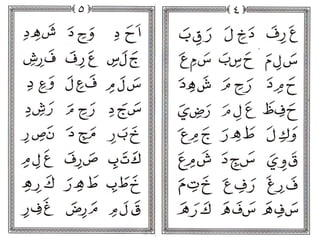 ٤
عَرِفَ دَخِلَ رَقِبَ
سَلِمَ حَسِبَ سَمِعَ
حَمِدَ رَحِمَ شَهِدَ
حَفِظَ عَلِمَ رَضِيَ
وَكِلَ طَهِرَ جَمِعَ
قَوِيَ سَجِدَ شَمِعَ
فَرِغَ رَفِعَ خَتِمَ
سَفِهَ سَفَهَ كَرَهَ
٥
اَحَدِ وَجَدِ شَهِدِ
جَلَسِ عَرَفِ فَرِشِ
سَلَمِ فَعَلِ وَعِدِ
سَجَدِ رَجَمِ رَشِدِ
خَبَرِ مَجَدِ نَصِرِ
كَتَبِ صَرَفِ عَلِمِ
خَطَبِ طَهَرِ كَرِهِ
قَلَمِ مَرَضِ غَفِرِ